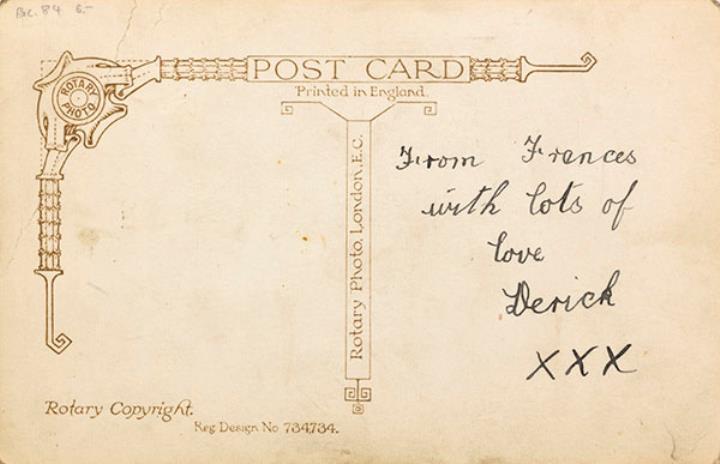 Dec. 84 6.-
POST CARD
Printed in England.
ROTARY
PHOTO
Rotary Photo, London, E.C.
From Frances
with lots of
love
Derick
XXX
Rotary Copyright.
Reg Design No 734,734.